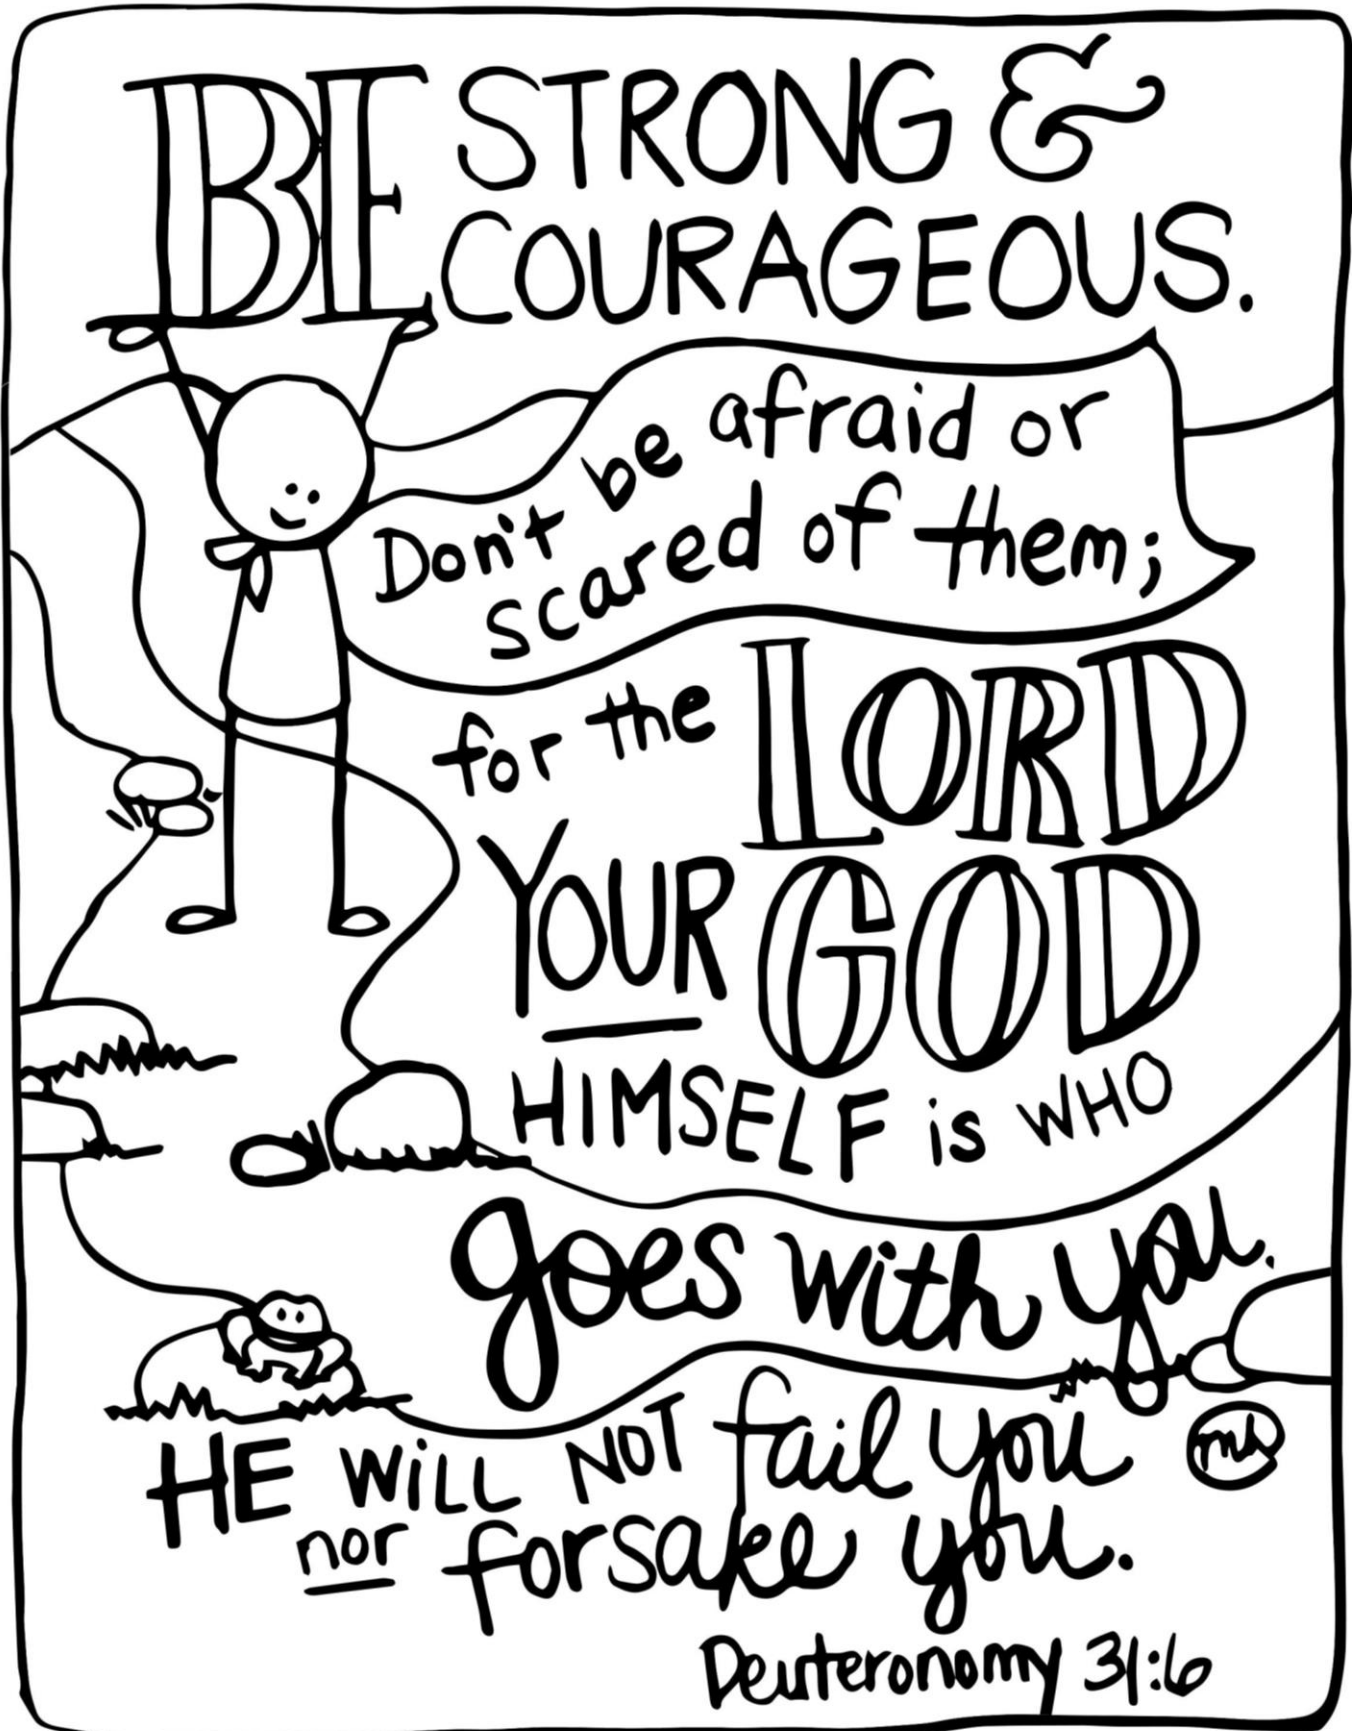 BE STRONG &
COURAGEOUS.
Don't be afraid or
scared of them;
for the LORD
YOUR GOD
HIMSELF is WHO
goes with you.
HE WiLL NOT fail you
nor forsake you.
mh
Deuteronomy 31:6